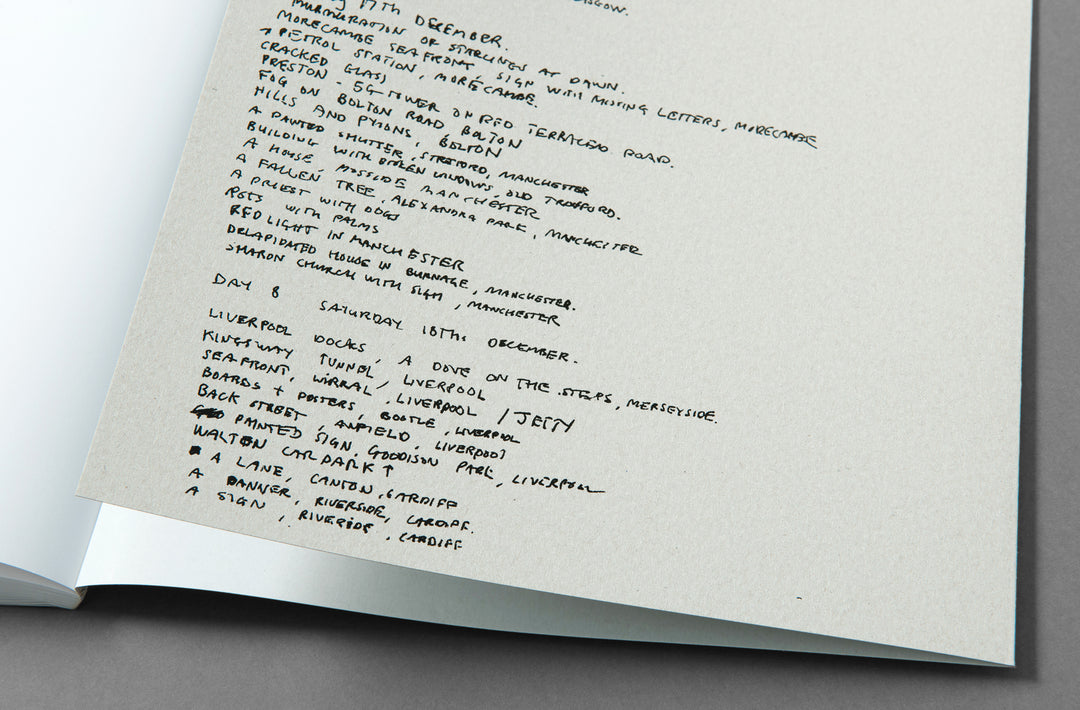 17TH DECEMBER.
MURMURATION OF STARLINGS AT DAWN.
MORECAMBE SEAFRONT, SIGN WITH MISSING LETTERS, MORECAMBE
→ PETROL STATION, MORECAMBE.
CRACKED GLASS
PRESTON - 5G TOWER ON RED TERRACED ROAD.
FOG ON BOLTON ROAD BOLTON
HILLS AND PYLONS, BOLTON
A PAINTED SHUTTER, STRETFORD, MANCHESTER
BUILDING WITH BROKEN WINDOWS, OLD TRAFFORD.
A HOUSE, MOSSIDE MANCHESTER
A FALLEN TREE, ALEXANDRA PARK, MANCHESTER
A PRIEST WITH DOGS
POTS WITH PALMS
RED LIGHT IN MANCHESTER
DELAPIDATED HOUSE IN BURNAGE, MANCHESTER.
SHARON CHURCH WITH SIGN, MANCHESTER
DAY 8 SATURDAY 18TH. DECEMBER.
LIVERPOOL DOCKS, A DOVE ON THE STEPS, MERSEYSIDE.
KINGSWAY TUNNEL, LIVERPOOL
SEAFRONT, WIRRAL, LIVERPOOL / JETTY
BOARDS + POSTERS, BOOTLE, LIVERPOOL
BACK STREET, ANFIELD, LIVERPOOL
PAINTED SIGN, GOODISON PARK, LIVERPOOL
WALTON CAR PARK ↑
A LANE, CANTON, CARDIFF
A BANNER, RIVERSIDE, CARDIFF.
A SIGN, RIVERSIDE, CARDIFF